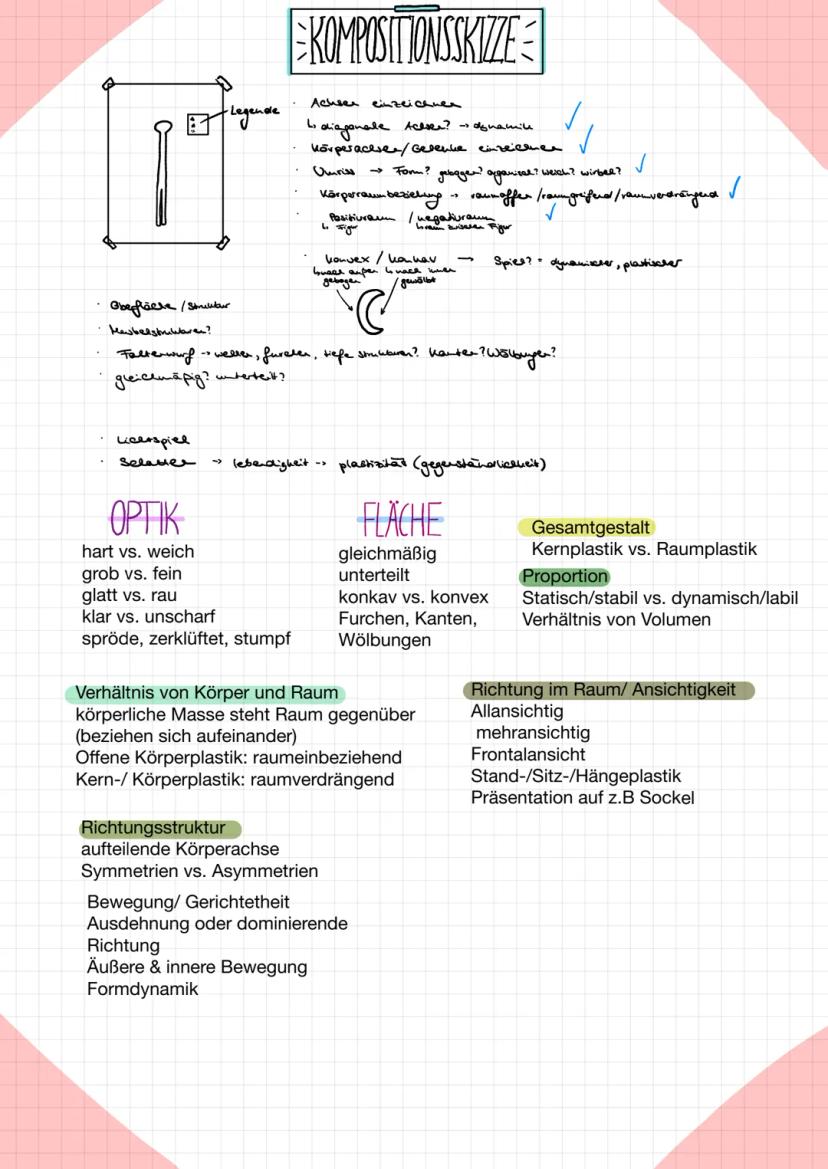 KOMPOSITIONSSKIZZE
Legende
· Achsen einzeichnen
↳ diagonale Achsen? → dynamik
· Körperachsen/Gelenke einzeichnen
· Umriss → Form? gebogen? organisch? weich? wirbel?
· Körperraumbeziehung → raumoffen/raumgreifend/raumverdrängend
· Positivraum / negativraum
↳ Figur ↳ raum zwischen Figur
· konvex / konkav → Spiel? = dynamischer, plastischer
↳ nach außen ↳ nach innen
gebogen gewölbt
· Oberfläche / Struktur
· Muskelstrukturen?
· Faltenwurf → wellen, furchen, tiefe strukturen? Kanten? Wölbungen?
· gleichmäßig? unterteilt?
· Lichtspiel
· Schatten → lebendigkeit -> plastizität (gegenständlichkeit)
OPTIK
hart vs. weich
grob vs. fein
glatt vs. rau
klar vs. unscharf
spröde, zerklüftet, stumpf
FLÄCHE
gleichmäßig
unterteilt
konkav vs. konvex
Furchen, Kanten,
Wölbungen
Gesamtgestalt
Kernplastik vs. Raumplastik
Proportion
Statisch/stabil vs. dynamisch/labil
Verhältnis von Volumen
Verhältnis von Körper und Raum
körperliche Masse steht Raum gegenüber
(beziehen sich aufeinander)
Offene Körperplastik: raumeinbeziehend
Kern-/ Körperplastik: raumverdrängend
Richtung im Raum/ Ansichtigkeit
Allansichtig
mehransichtig
Frontalansicht
Stand-/Sitz-/Hängeplastik
Präsentation auf z.B Sockel
Richtungsstruktur
aufteilende Körperachse
Symmetrien vs. Asymmetrien
Bewegung/ Gerichtetheit
Ausdehnung oder dominierende
Richtung
Äußere & innere Bewegung
Formdynamik